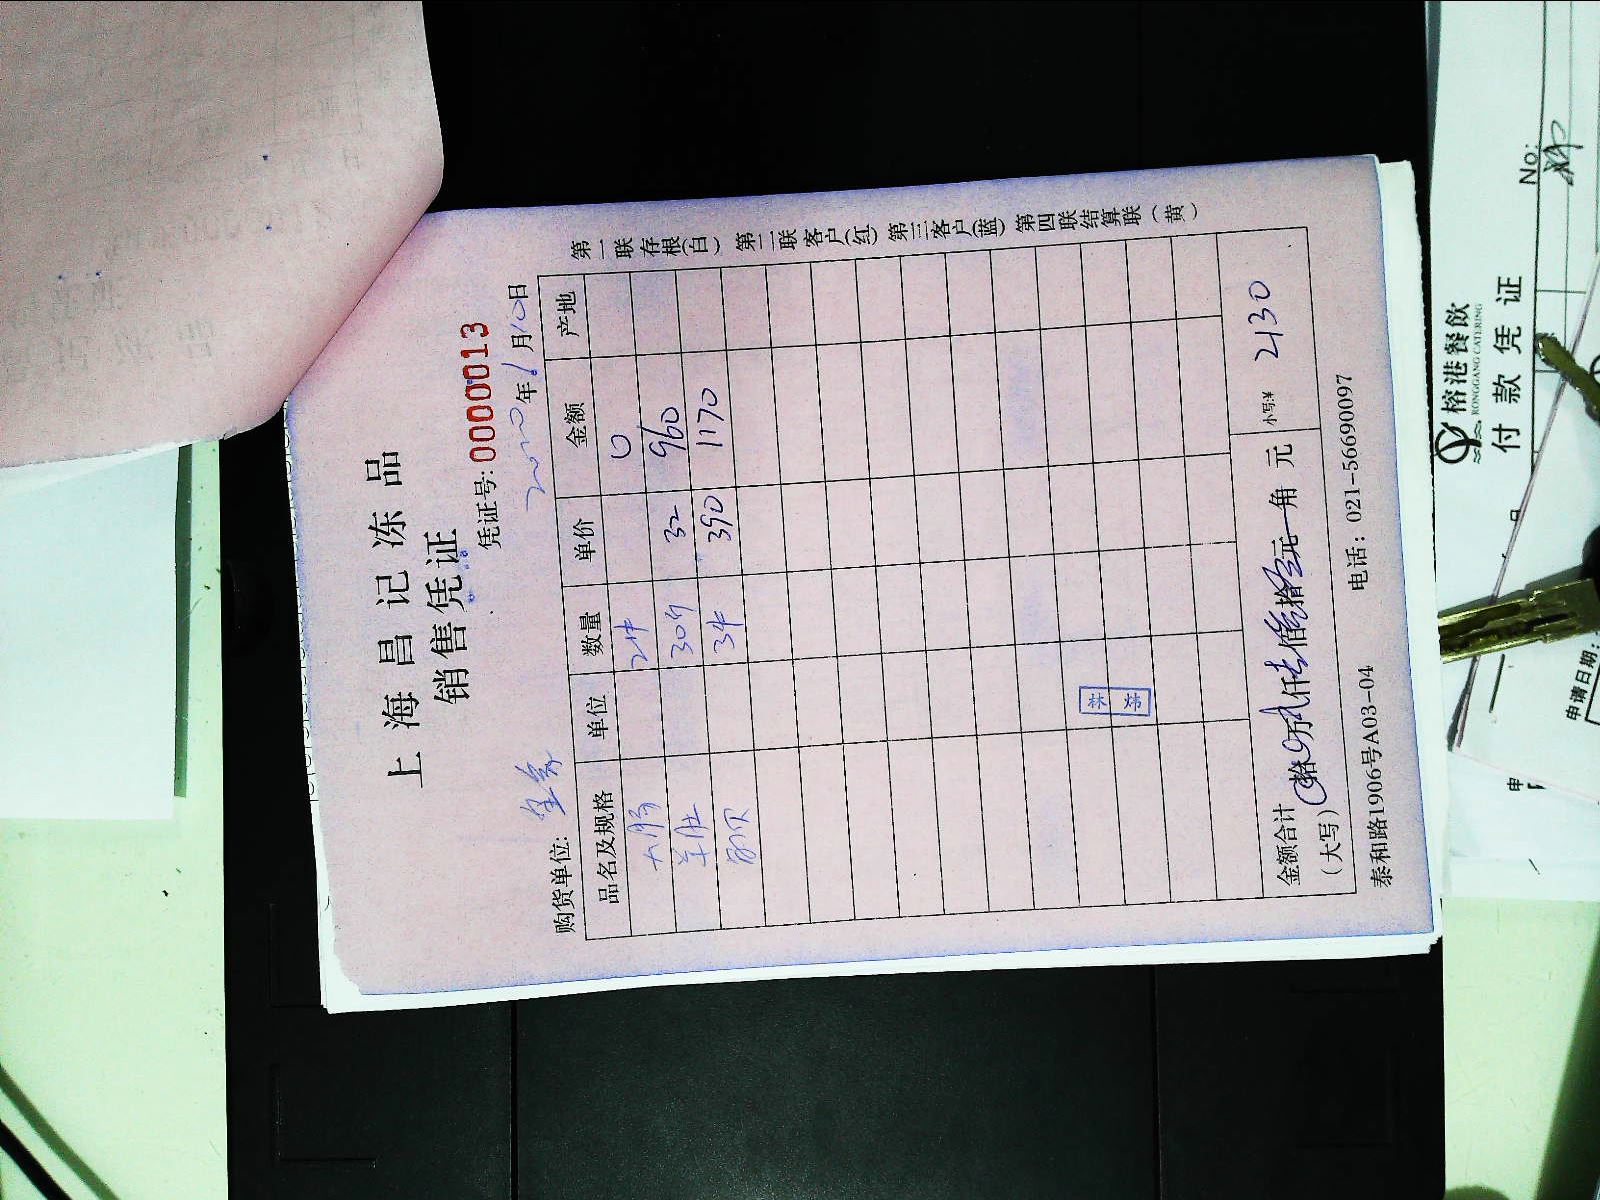 上海昌记冻品
销售凭证
凭证号:0000013
2020年1月10日
购货单位:
品名及规格 单位 数量 单价 金额 产地
大肠 2件 0
羊肚 30斤 32 960
3件 390 1170
林炜
金额合计
(大写) 拾 万 仟 佰 拾 元 角 元 小写:¥ 2130
泰和路1906号A03-04 电话:021-56690097
第一联存根(白) 第二联客户(红) 第三客户(蓝) 第四联结算联(黄)
榕港餐飲
RONGGANG CATERING
付款凭证
No:
申请日期: